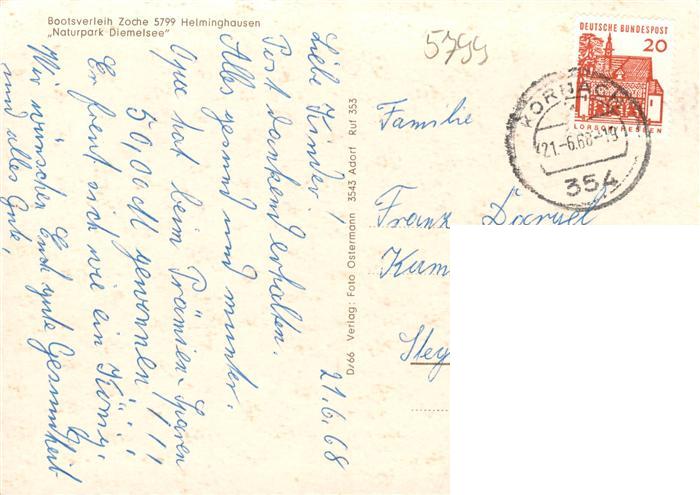 Bootsverleih Zoche 5799 Helminghausen
„Naturpark Diemelsee“
5799
DEUTSCHE BUNDESPOST
20
LORSCH/HESSEN
KORBACH
21.-6.68-19
354
Liebe Kinder,
21.6.68
Post dankend erhalten.
Alles gesund und munter.
Opa hat beim Prämien-Sparen
50,00 M gewonnen!!!
Er freut sich wie ein König.
Wir wünschen Euch gute Gesundheit
und alles Gute,
D/66 Verlag: Foto Ostermann 3543 Adorf Ruf 353
Familie
Franz